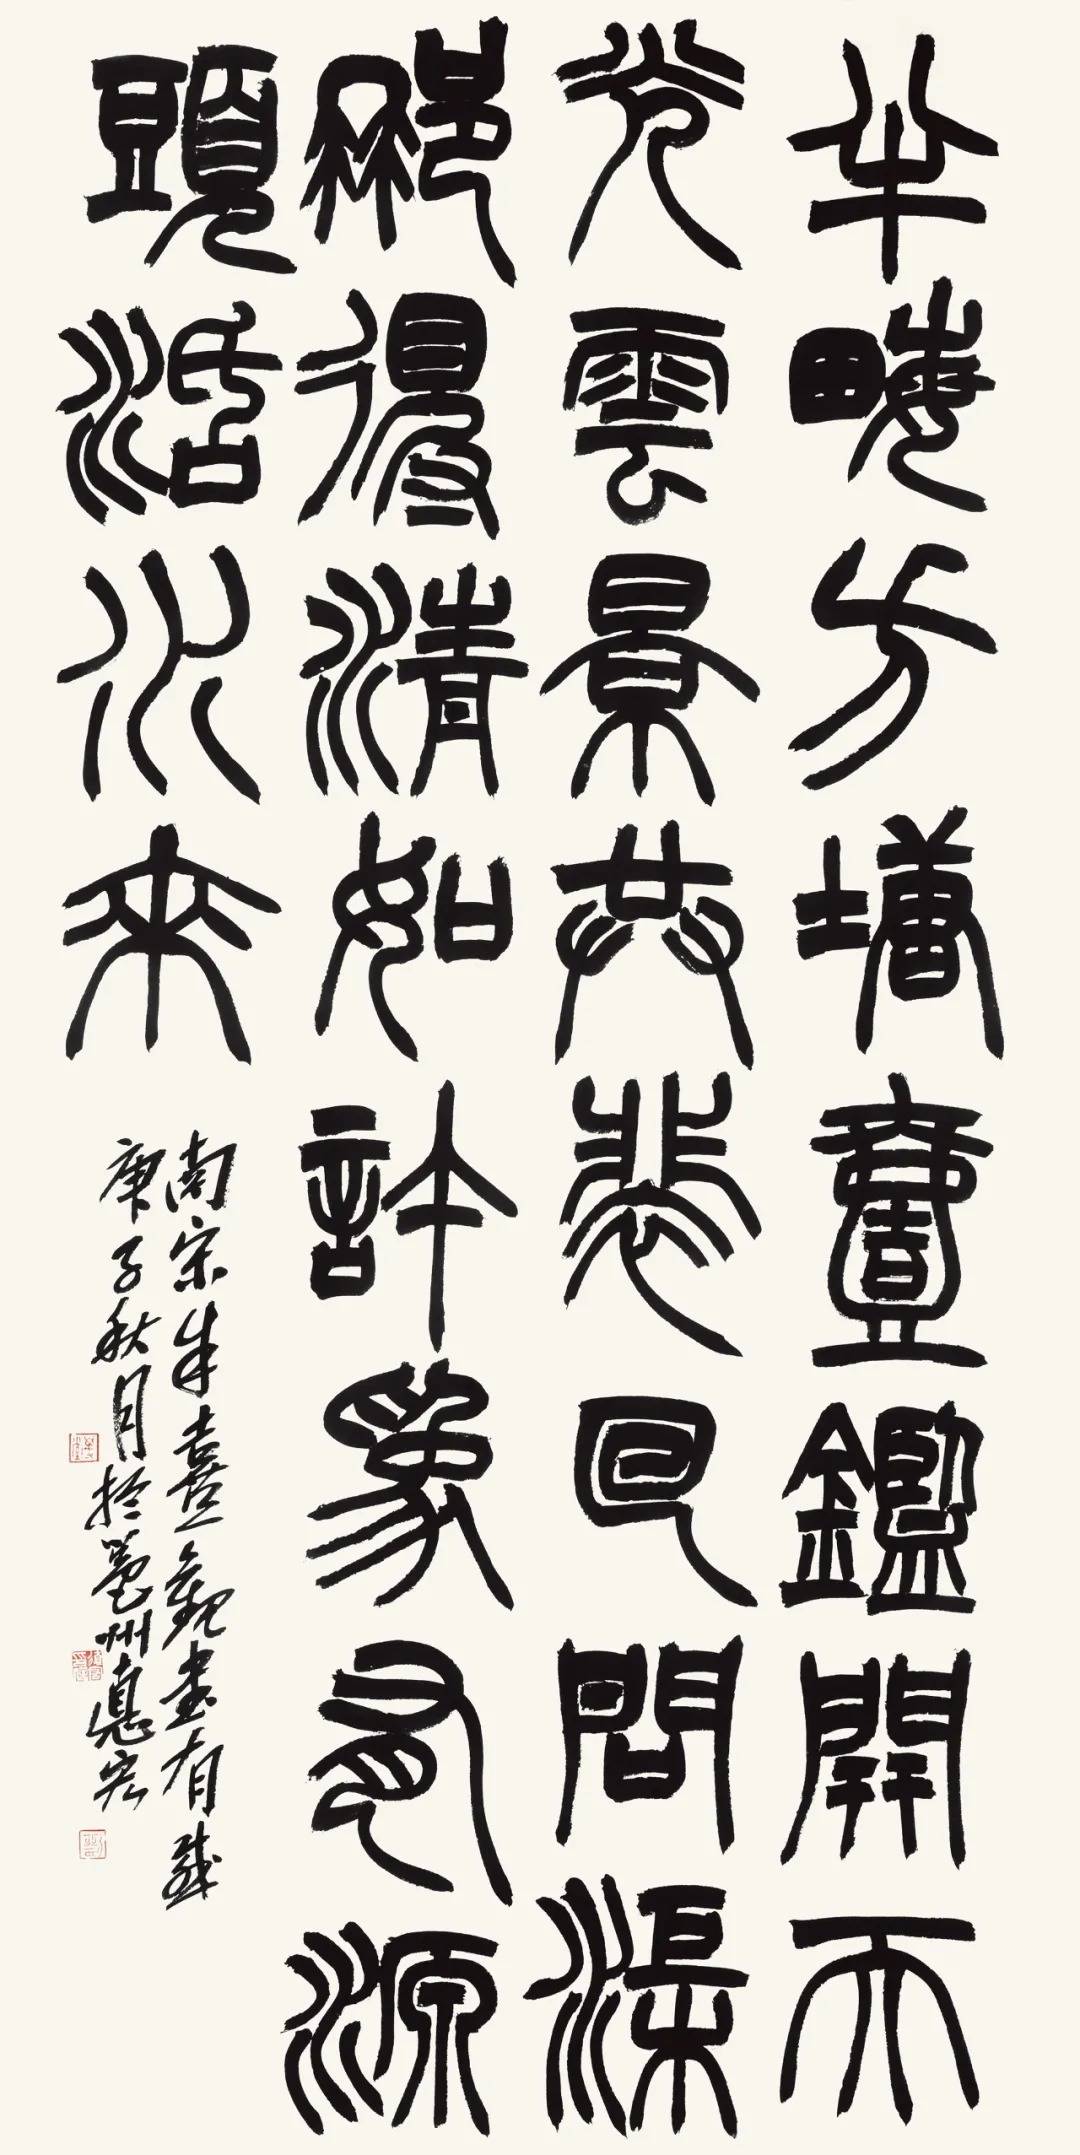 半畮方塘壹鑑開天
光雲景共裴回問渠
那得清如許爲有源
頭活水來
南宋朱熹觀書有感
庚子秋月於州悳宏